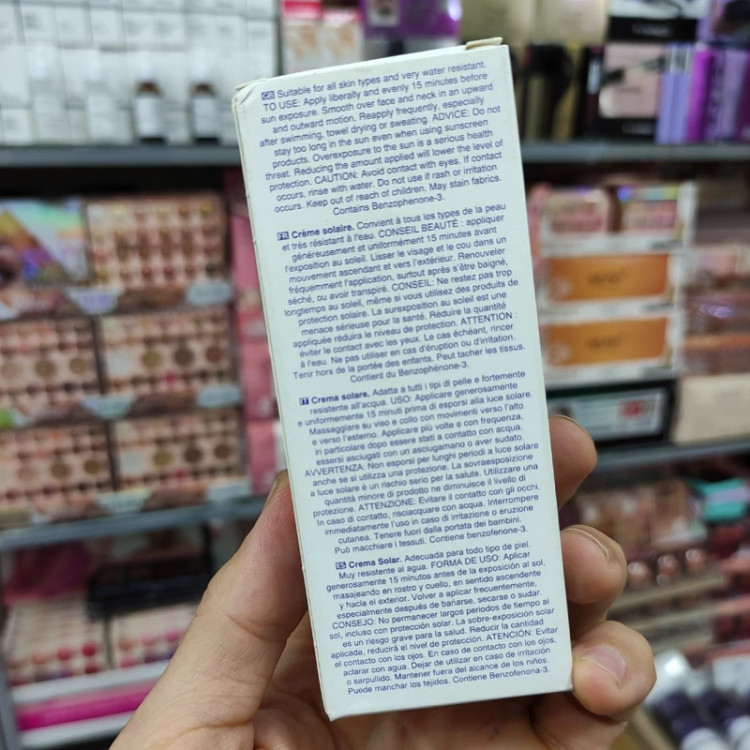 GB Suitable for all skin types and very water resistant.
TO USE: Apply liberally and evenly 15 minutes before
sun exposure. Smooth over face and neck in an upward
and outward motion. Reapply frequently, especially
after swimming, towel drying or sweating. ADVICE: Do not
stay too long in the sun even when using sunscreen
products. Overexposure to the sun is a serious health
threat. Reducing the amount applied will lower the level of
protection. CAUTION: Avoid contact with eyes. If contact
occurs, rinse with water. Do not use if rash or irritation
occurs. Keep out of reach of children. May stain fabrics.
Contains Benzophenone-3.
FR Crème solaire. Convient à tous les types de la peau
et très résistant à l'eau. CONSEIL BEAUTÉ : appliquer
généreusement et uniformément 15 minutes avant
l'exposition au soleil. Lisser le visage et le cou dans un
mouvement ascendant et vers l'extérieur. Renouveler
fréquemment l'application, surtout après s'être baigné,
séché, ou avoir transpiré. CONSEIL: Ne restez pas trop
longtemps au soleil, même si vous utilisez des produits de
protection solaire. La surexposition au soleil est une
menace sérieuse pour la santé. Réduire la quantité
appliquée réduira le niveau de protection. ATTENTION :
éviter le contact avec les yeux. Le cas échéant, rincer
à l'eau. Ne pas utiliser en cas d'éruption ou d'irritation.
Tenir hors de la portée des enfants. Peut tacher les tissus.
Contient du Benzophénone-3.
IT Crema solare. Adatta a tutti i tipi di pelle e fortemente
resistente all'acqua. USO: Applicare generosamente
e uniformemente 15 minuti prima di esporsi alla luce solare.
Massaggiare su viso e collo con movimenti verso l'alto
e verso l'esterno. Applicare più volte e con frequenza,
in particolare dopo essere stati a contatto con acqua,
essersi asciugati con un asciugamano o aver sudato.
AVVERTENZA: Non esporsi per lunghi periodi a luce solare
anche se si utilizza una protezione. La sovraesposizione
a luce solare è un rischio serio per la salute. Utilizzare una
quantità minore di prodotto ne diminuisce il livello di
protezione. ATTENZIONE: Evitare il contatto con gli occhi.
In caso di contatto, risciacquare con acqua. Interrompere
immediatamente l'uso in caso di irritazione o eruzione
cutanea. Tenere fuori dalla portata dei bambini.
Può macchiare i tessuti. Contiene benzofenone-3.
ES Crema Solar. Adecuada para todo tipo de piel.
Muy resistente al agua. FORMA DE USO: Aplicar
generosamente 15 minutos antes de la exposición al sol,
masajeando en rostro y cuello, en sentido ascendente
y hacia el exterior. Volver a aplicar frecuentemente,
especialmente después de bañarse, secarse o sudar.
CONSEJO: No permanecer largos periodos de tiempo al
sol, incluso con protección solar. La sobre-exposición solar
es un riesgo grave para la salud. Reducir la cantidad
aplicada, reducirá el nivel de protección. ATENCIÓN: Evitar
el contacto con los ojos. En caso de contacto con los ojos,
aclarar con agua. Dejar de utilizar en caso de irritación
o sarpullido. Mantener fuera del alcance de los niños.
Puede manchar los tejidos. Contiene Benzofenona-3.